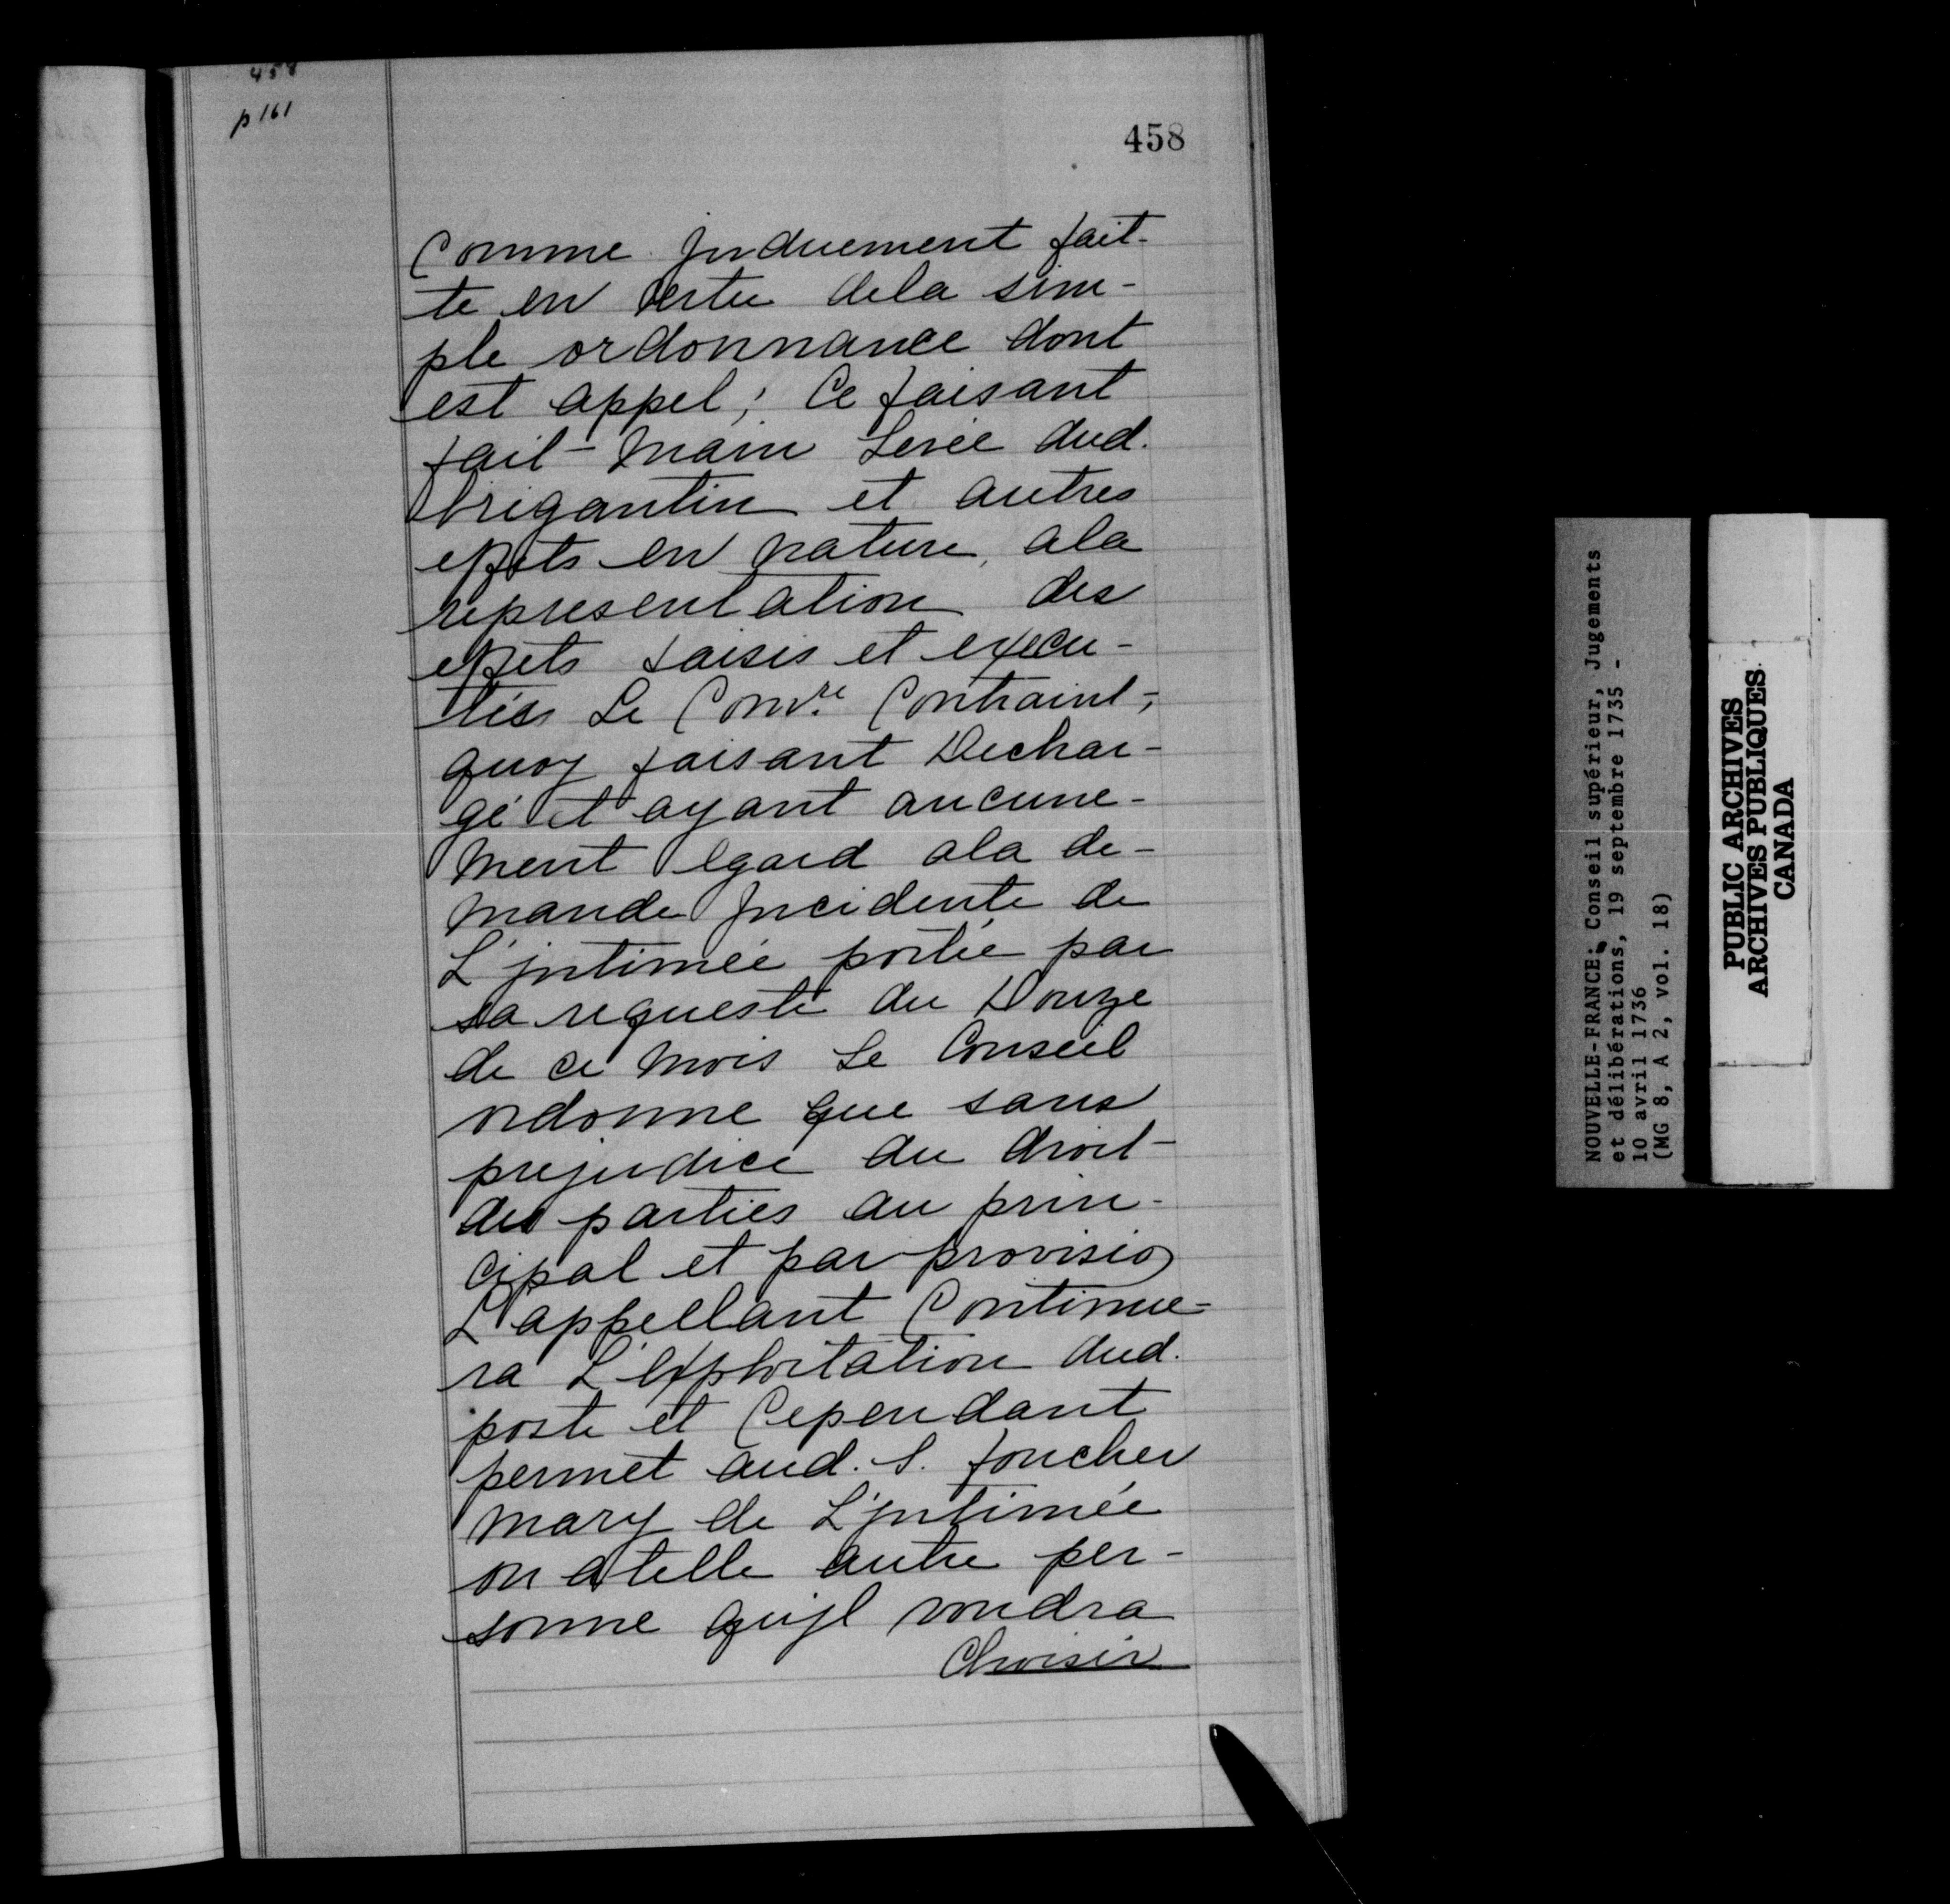 458
p 161
458
Comme jnduement fait-
te en vertu dela sim-
ple ordonnance dont
est appel; Ce faisant
fait main Levée dud.
brigantin et autres
effets en nature, ala
representation des
effets saisis et execu-
tés Le Comre. Contraint,
quoy faisant Dechar-
gé et ayant aucune-
ment egard ala de-
mande jncidente de
L'jntimée portée par
sa requeste du Douze
de ce mois Le Conseil
ordonne que sans
prejudice du droit
des parties au prin-
cipal et par provision
L'appellant Continue-
ra L'exploitation dud.
poste et Cependant
permet aud. S. foucher
mary de L'jntimée
ou atelle autre per-
sonne qujl voudra
Choisir
NOUVELLE-FRANCE: Conseil supérieur, Jugements
et délibérations, 19 septembre 1735 -
10 avril 1736
(MG 8, A 2, vol. 18)
PUBLIC ARCHIVES
ARCHIVES PUBLIQUES
CANADA